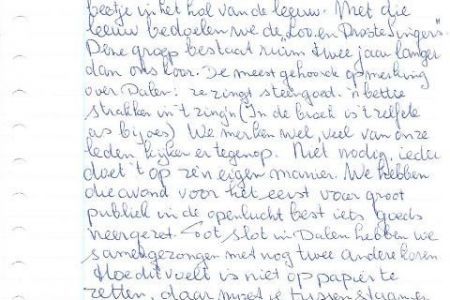 beetje in het hol van de leeuw. Met die
leeuw bedoelen we de „Loo en Drostesingers"
Deze groep bestaat ruim twee jaar langer
dan ons koor. De meest gehoorde opmerking
over Dalen: ze zingt steengoed. 'n bettie
strakker in 't zing'n (In de broek is 't zelfde
as bij oes) We merken wel, veel van onze
leden kijken er tegenop. Niet nodig, ieder
doet 't op z'n eigen manier. We hebben
die avond voor het eerst voor groot
publiek in de openlucht best iets goeds
neergezet. Tot slot in Dalen hebben we
samengezongen met nog twee andere koren
Hoe dit voelt is niet op papier te
zetten, daar moet je tussen staan